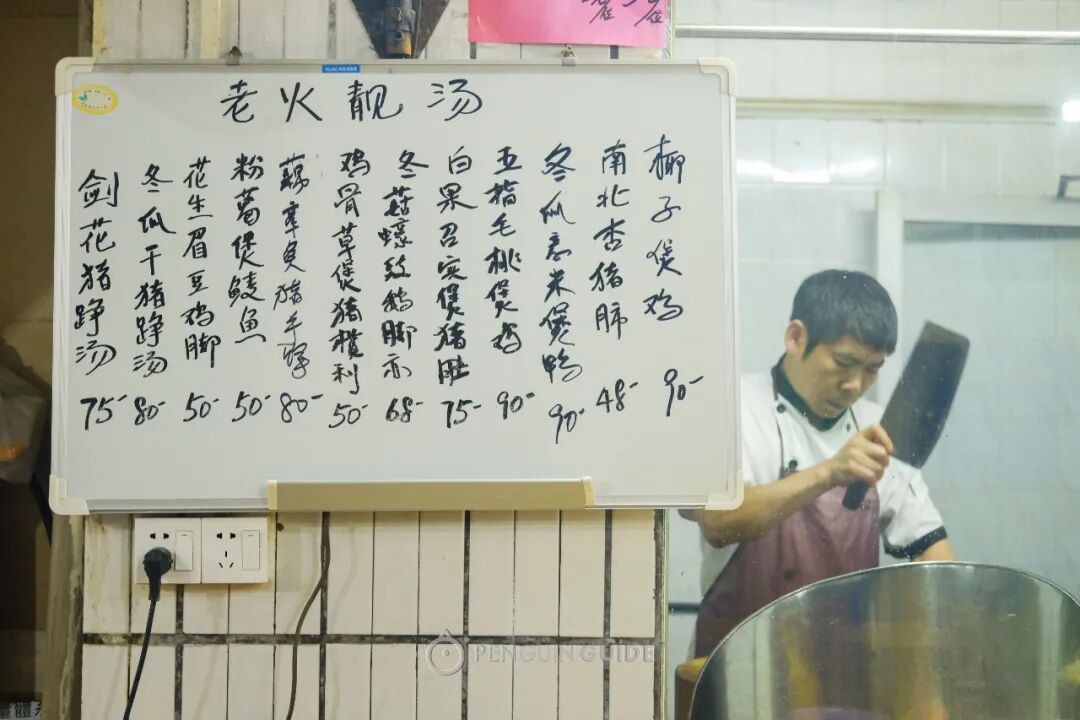 老火靓汤
椰子煲鸡 90-
南北杏猪肺 48-
冬瓜意米煲鸭 90-
五指毛桃煲鸡 90-
白果召实煲猪肚 75-
冬菇蠔豉脚 68-
鸡骨草煲猪横利 50-
藕章猪 80-
粉葛煲鲮鱼 50-
花生眉豆鸡脚 50-
冬瓜干猪踭汤 80-
剑花猪踭汤 75-
PENGUIN GUIDE